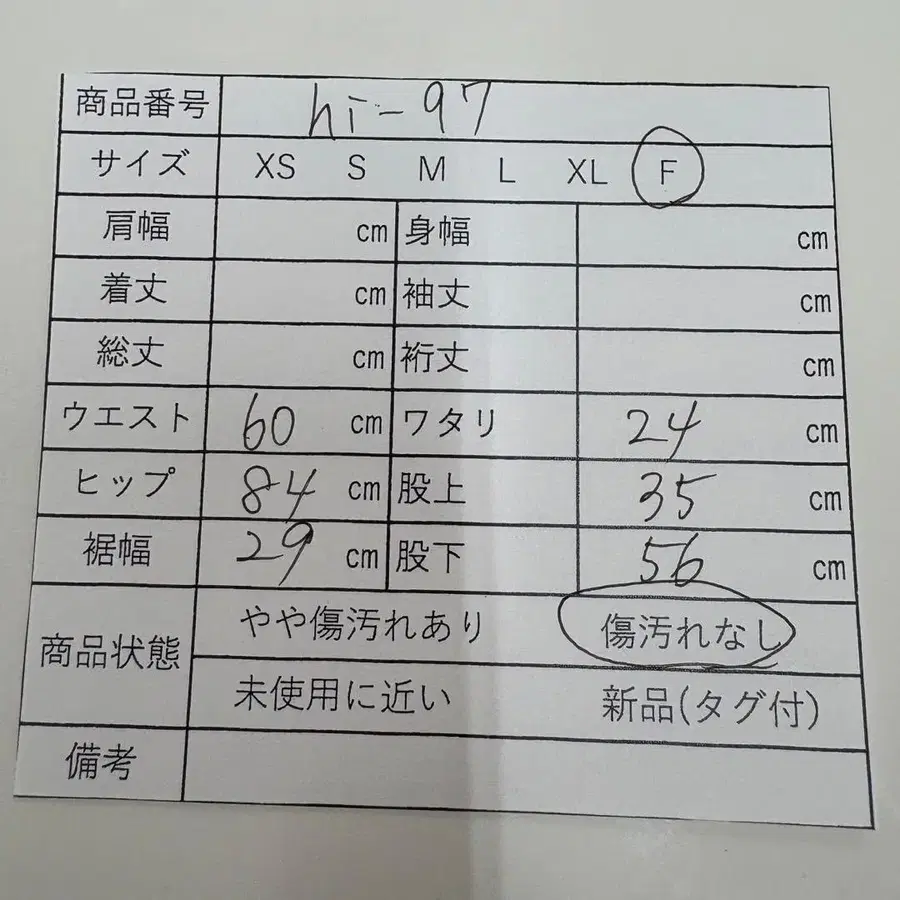 商品番号 hi-97
サイズ XS S M L XL F
肩幅 cm 身幅 cm
着丈 cm 袖丈 cm
総丈 cm 裄丈 cm
ウエスト 60 cm ワタリ 24 cm
ヒップ 84 cm 股上 35 cm
裾幅 29 cm 股下 56 cm
商品状態 やや傷汚れあり 傷汚れなし
未使用に近い 新品(タグ付)
備考